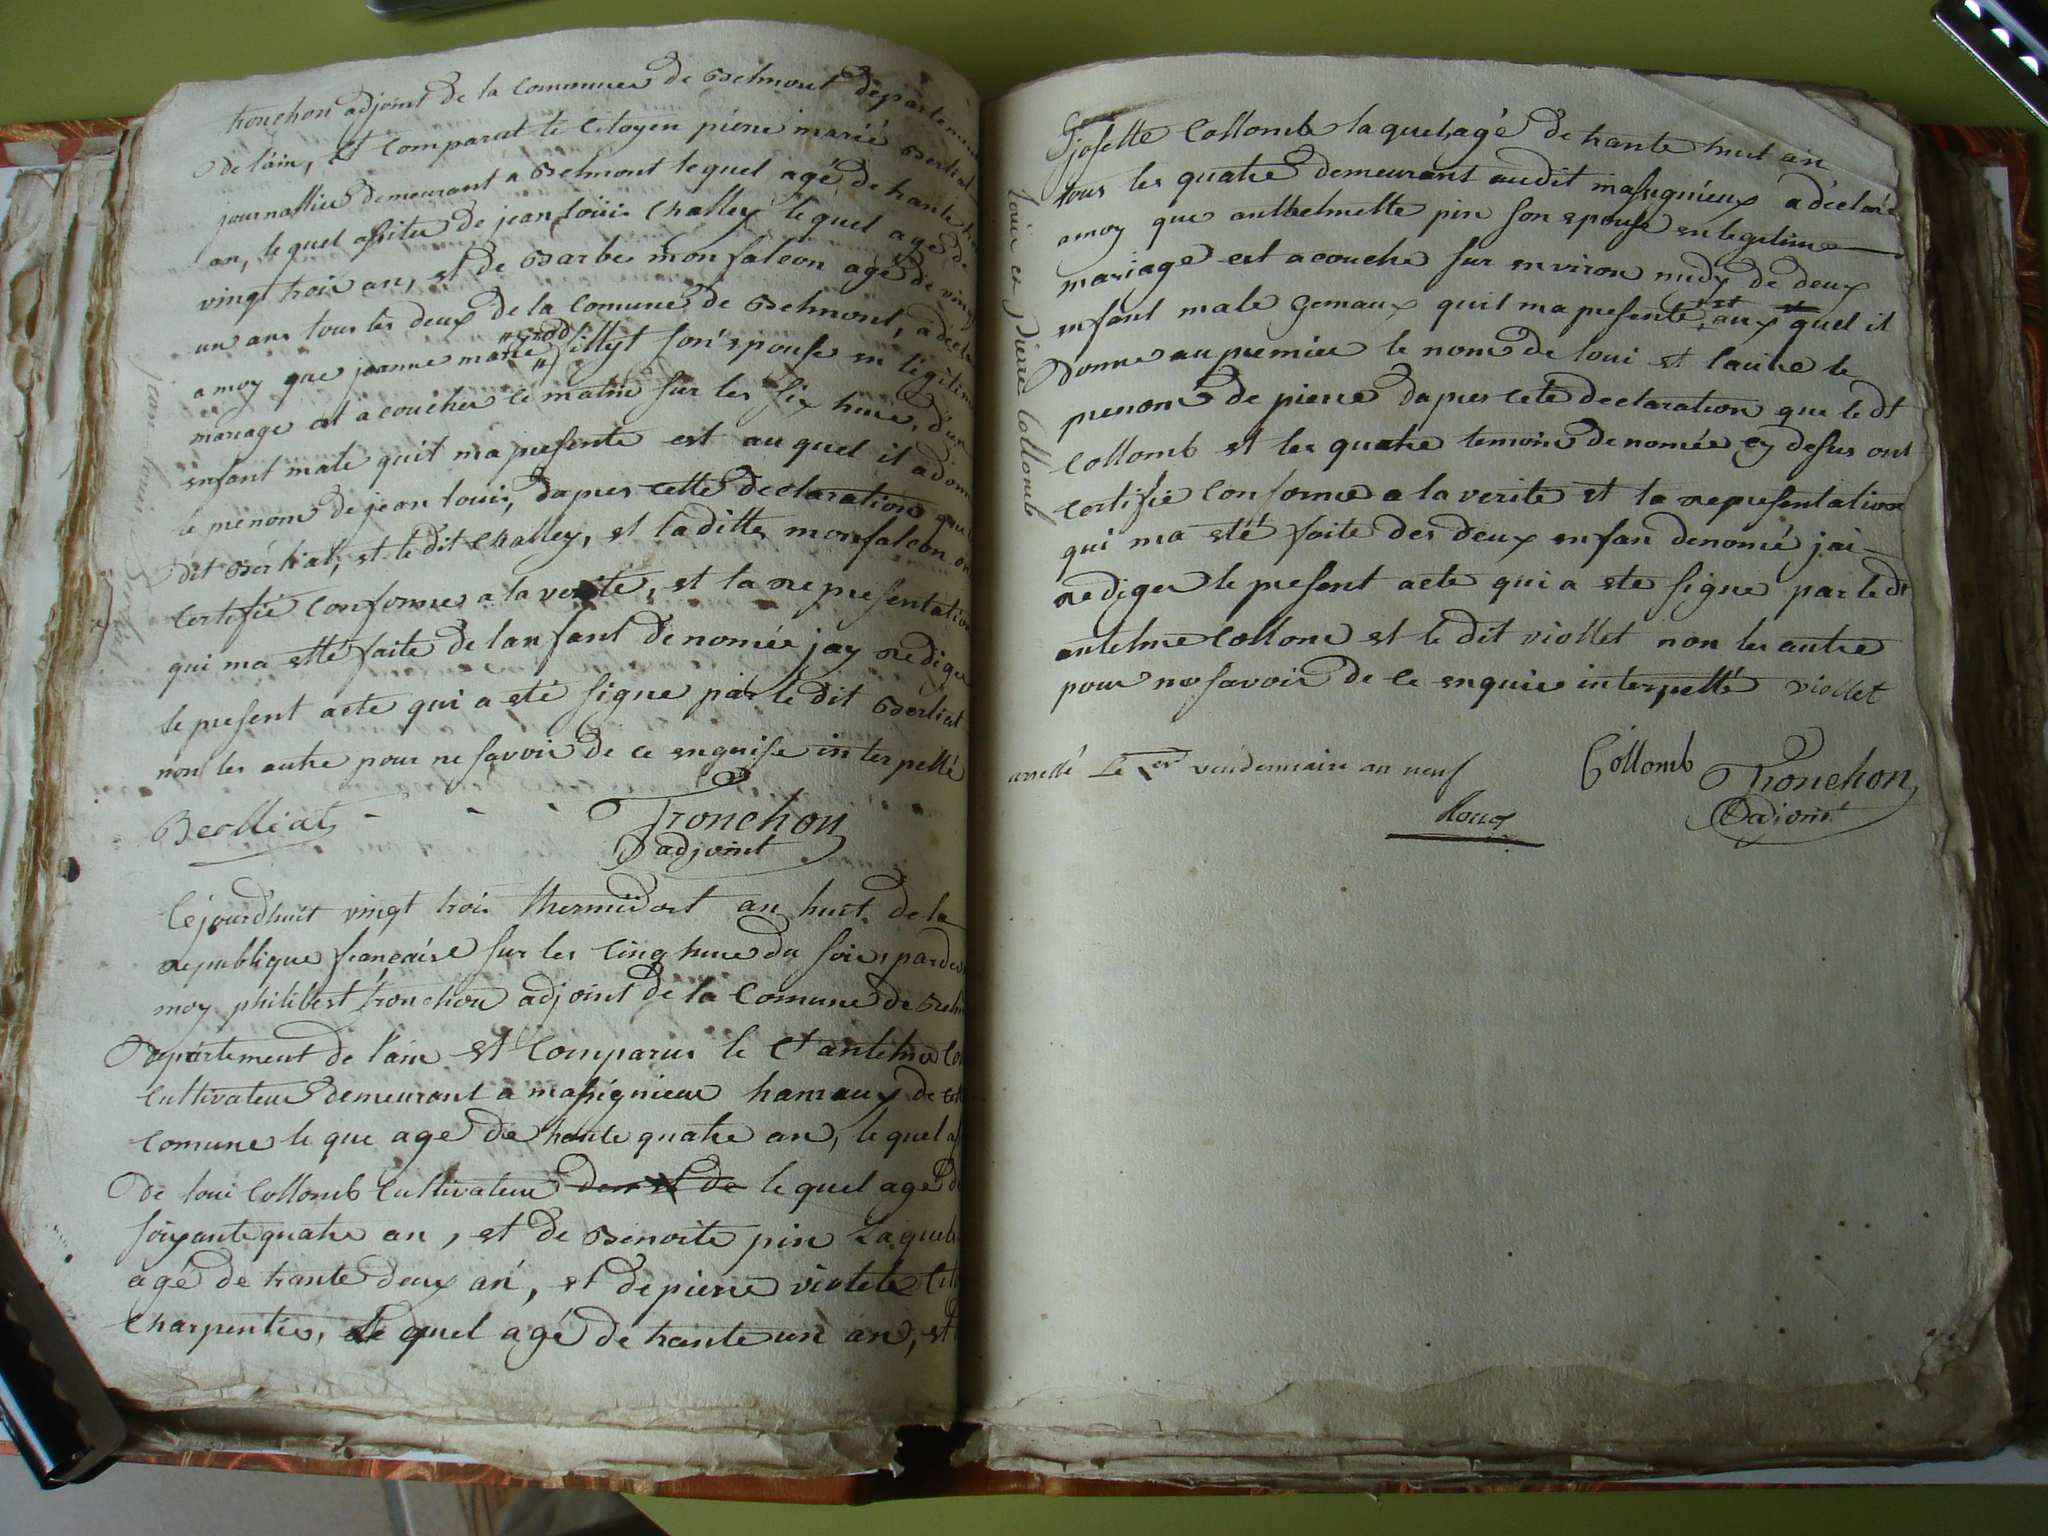 tronchon adjoint de la Commune de Belmont departement
de l'ain, est Comparut le Citoyen piérre marié Berliat
journallier demeurant a Belmont lequel agé de trante
an, lequel asiste de jean loüis Challey le quel age de
vingt trois an, et de Barbe monfalcon agé de vingt
un ans tous les deux de la comune de Belmont, a decla
a moy que jeanne marie sillyt son épouse en legitime
mariage est acoucher ce matin sur les six heure, d'un
enfant male quit ma presente est auquel il adonne
le prénom de jean louis, dapres cette declaration que
dit Berliat, et le dit Challey, et laditte monfalcon on
Certifié conforme a la verite, et la representation
qui ma etté faite de lanfant denomée jay rediger
le present acte qui a eté signe par le dit Berliat
non les autre pour ne savoir de ce enquise interpellé
Berlliat
Tronchon
adjoint
jean louis Berliat
Cejourdhuit vingt trois thermidort an huit de la
republique francaise sur les cinq heure du soir, pardev
moy philibert tronchon adjoint de la Comune de Belm
departement de l'ain est Comparus le Ct antelme Co
Cultivateur demeurant a massignieux hameaux de
comune le que age de trante quatre an, le quel as
De loui Collomb Cultivateur le quel age d
soixante quatre an, et de Benoite pin laquel
agé de trante deux an, et de pierre violete
Charpentier, le quel agé de trante un an, et
josette Collomb laquel agé de trante huit an
tous les quatre demeurant audit massignieux a déclaré
a moy que anthelmette pin son epouse en legitime
mariage est acouche sur environ midy de deux
enfant male gemaux quil ma presente, est aux quel il
Donne au premier le nom de loui et lautre le
prenom de pierre dapres cete declaration que le dt
Collomb et les quatre temoins denomée cy desus ont
certifie conforme a la verite et la representation
qui ma eté faite des deux enfan denomé jai
rediger le present acte qui a ete signe par le dt
antelme Collom et le dit viollet non les autre
pour ne savoir de ce enquis interpellé viollet
Collomb
Tronchon
adjoint
arretté Le 1er vendemiaire an neuf
Loui et Pierre Collomb